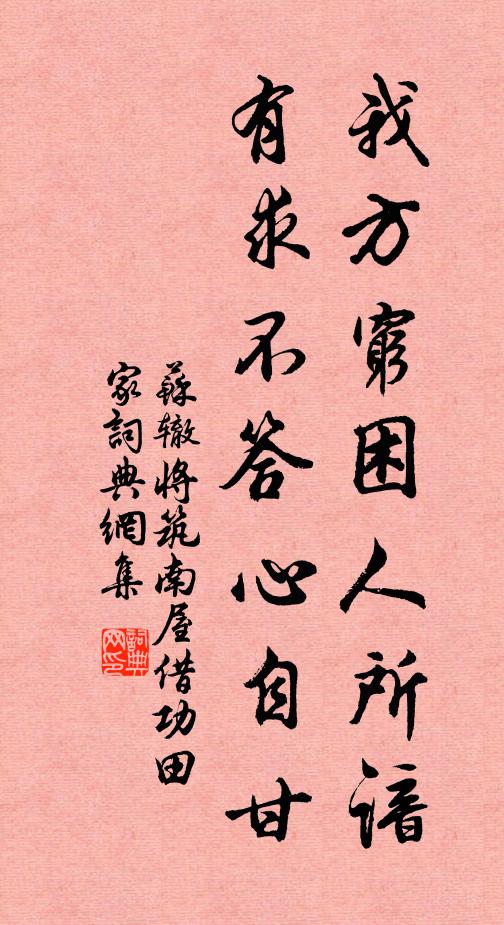 我方窮困人所諳
有求不答心自甘
蘇辙將筑南屋借功田
家詞典網集
詞典
网印